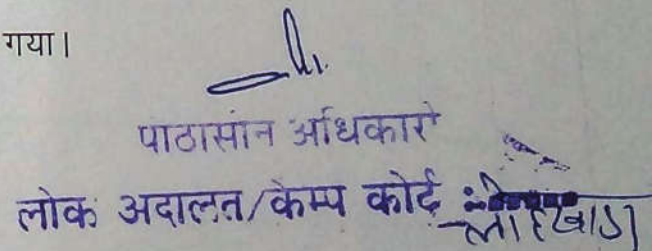 गया।
पाठासीन अधिकारी
लोक अदालत/केम्प कोर्ट :